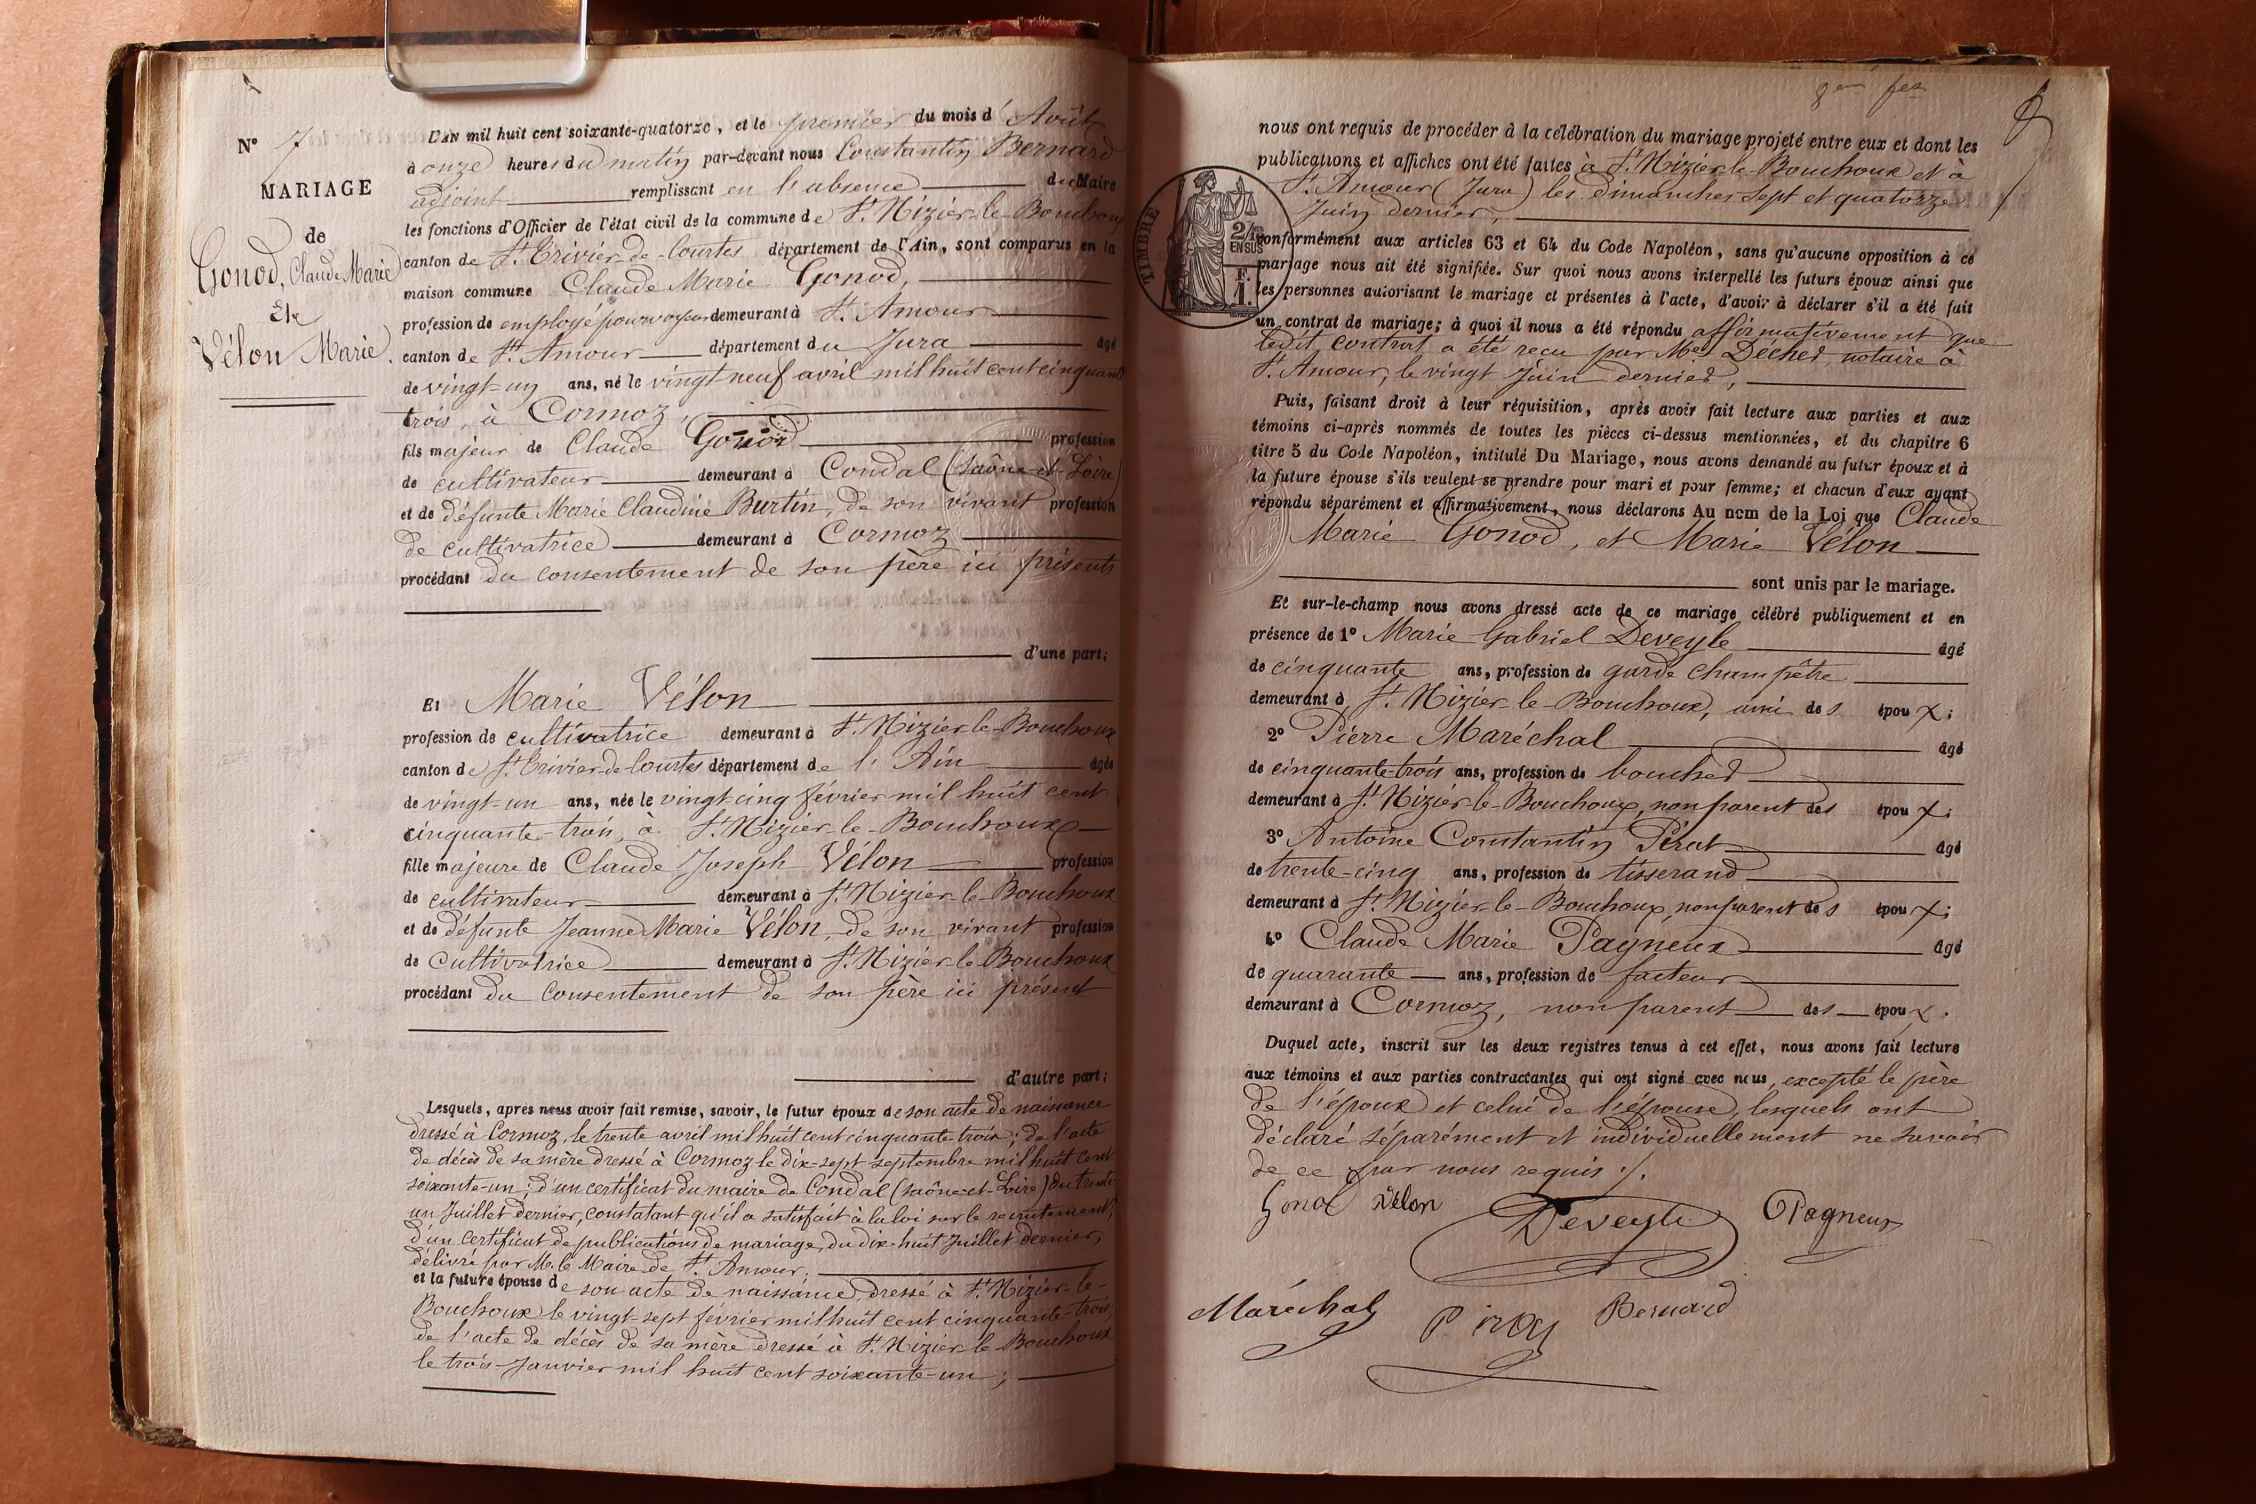 N° 7
MARIAGE
de
Gonod, Claude Marie
Et
Vélon Marie.
L'AN mil huit cent soixante-quatorze, et le premier du mois d'Août
à onze heures du matin par-devant nous Constantin Bernard
adjoint remplissant en l'absence de Maire
les fonctions d'Officier de l'état civil de la commune de St. Nizier-le-Bouchoux
canton de St. Trivier-de-Courtes département de l'Ain, sont comparus en la
maison commune Claude Marie Gonod,
profession de employé demeurant à St. Amour
canton de St. Amour département du Jura âgé
de vingt-un ans, né le vingt-neuf avril mil huit cent cinquante
trois, à Cormoz,
fils majeur de Claude Gonod profession
de cultivateur demeurant à Condal (Saône-et-Loire)
et de défunte Marie Claudine Burtin, de son vivant profession
de cultivatrice demeurant à Cormoz
procédant du consentement de son père ici présent
d'une part;
Et Marie Vélon
profession de cultivatrice demeurant à St. Nizier-le-Bouchoux
canton de St. Trivier-de-Courtes département de l'Ain âgée
de vingt-un ans, née le vingt-cinq février mil huit cent
cinquante-trois, à St. Nizier-le-Bouchoux
fille majeure de Claude Joseph Vélon profession
de cultivateur demeurant à St. Nizier-le-Bouchoux
et de défunte Jeanne Marie Vélon, de son vivant profession
de cultivatrice demeurant à St. Nizier-le-Bouchoux
procédant du consentement de son père ici présent
d'autre part;
Lesquels, après nous avoir fait remise, savoir, le futur époux de son acte de naissance
dressé à Cormoz, le trente avril mil huit cent cinquante trois; de l'acte
de décès de sa mère dressé à Cormoz le dix-sept septembre mil huit cent
soixante-un; d'un certificat du maire de Condal (Saône-et-Loire) du trente
un Juillet dernier, constatant qu'il a satisfait à la loi sur le recrutement;
d'un certificat de publications de mariage, du dix-huit Juillet dernier,
délivré par M. le Maire de St. Amour;
et la future épouse de son acte de naissance, dressé à St. Nizier-le-
Bouchoux le vingt-sept février mil huit cent cinquante-trois,
de l'acte de décès de sa mère dressé à St. Nizier-le-Bouchoux
le trois Janvier mil huit cent soixante-un;
nous ont requis de procéder à la célébration du mariage projeté entre eux et dont les
publications et affiches ont été faites à St. Nizier-le-Bouchoux et à
St. Amour (Jura) les dimanches sept et quatorze
Juin dernier,
TIMBRE
2/10
EN SUS
F.
1.
conformément aux articles 63 et 64 du Code Napoléon, sans qu'aucune opposition à ce
mariage nous ait été signifiée. Sur quoi nous avons interpellé les futurs époux ainsi que
les personnes autorisant le mariage et présentes à l'acte, d'avoir à déclarer s'il a été fait
un contrat de mariage; à quoi il nous a été répondu affirmativement que
ledit contrat a été reçu par Me Décher, notaire à
St. Amour, le vingt Juin dernier,
Puis, faisant droit à leur réquisition, après avoir fait lecture aux parties et aux
témoins ci-après nommés de toutes les pièces ci-dessus mentionnées, et du chapitre 6
titre 5 du Code Napoléon, intitulé Du Mariage, nous avons demandé au futur époux et à
la future épouse s'ils veulent se prendre pour mari et pour femme; et chacun d'eux ayant
répondu séparément et affirmativement, nous déclarons Au nom de la Loi que Claude
Marie Gonod, et Marie Vélon
sont unis par le mariage.
Et sur-le-champ nous avons dressé acte de ce mariage célébré publiquement et en
présence de 1° Marie Gabriel Deveyle âgé
de cinquante ans, profession de garde champêtre
demeurant à St. Nizier-le-Bouchoux, ami des époux;
2° Pierre Maréchal âgé
de cinquante-trois ans, profession de boucher
demeurant à St. Nizier-le-Bouchoux, non parent des époux;
3° Antoine Constantin Pirat âgé
de trente-cinq ans, profession de tisserand
demeurant à St. Nizier-le-Bouchoux, non parent des époux;
4° Claude Marie Pagneux âgé
de quarante ans, profession de facteur
demeurant à Cormoz, non parent des époux.
Duquel acte, inscrit sur les deux registres tenus à cet effet, nous avons fait lecture
aux témoins et aux parties contractantes qui ont signé avec nous, excepté le père
de l'époux et celui de l'épouse, lesquels ont
déclaré séparément et individuellement ne savoir
de ce par nous requis ./.
Gonod Vélon Deveyle Pagneux
Maréchal Piray Bernard